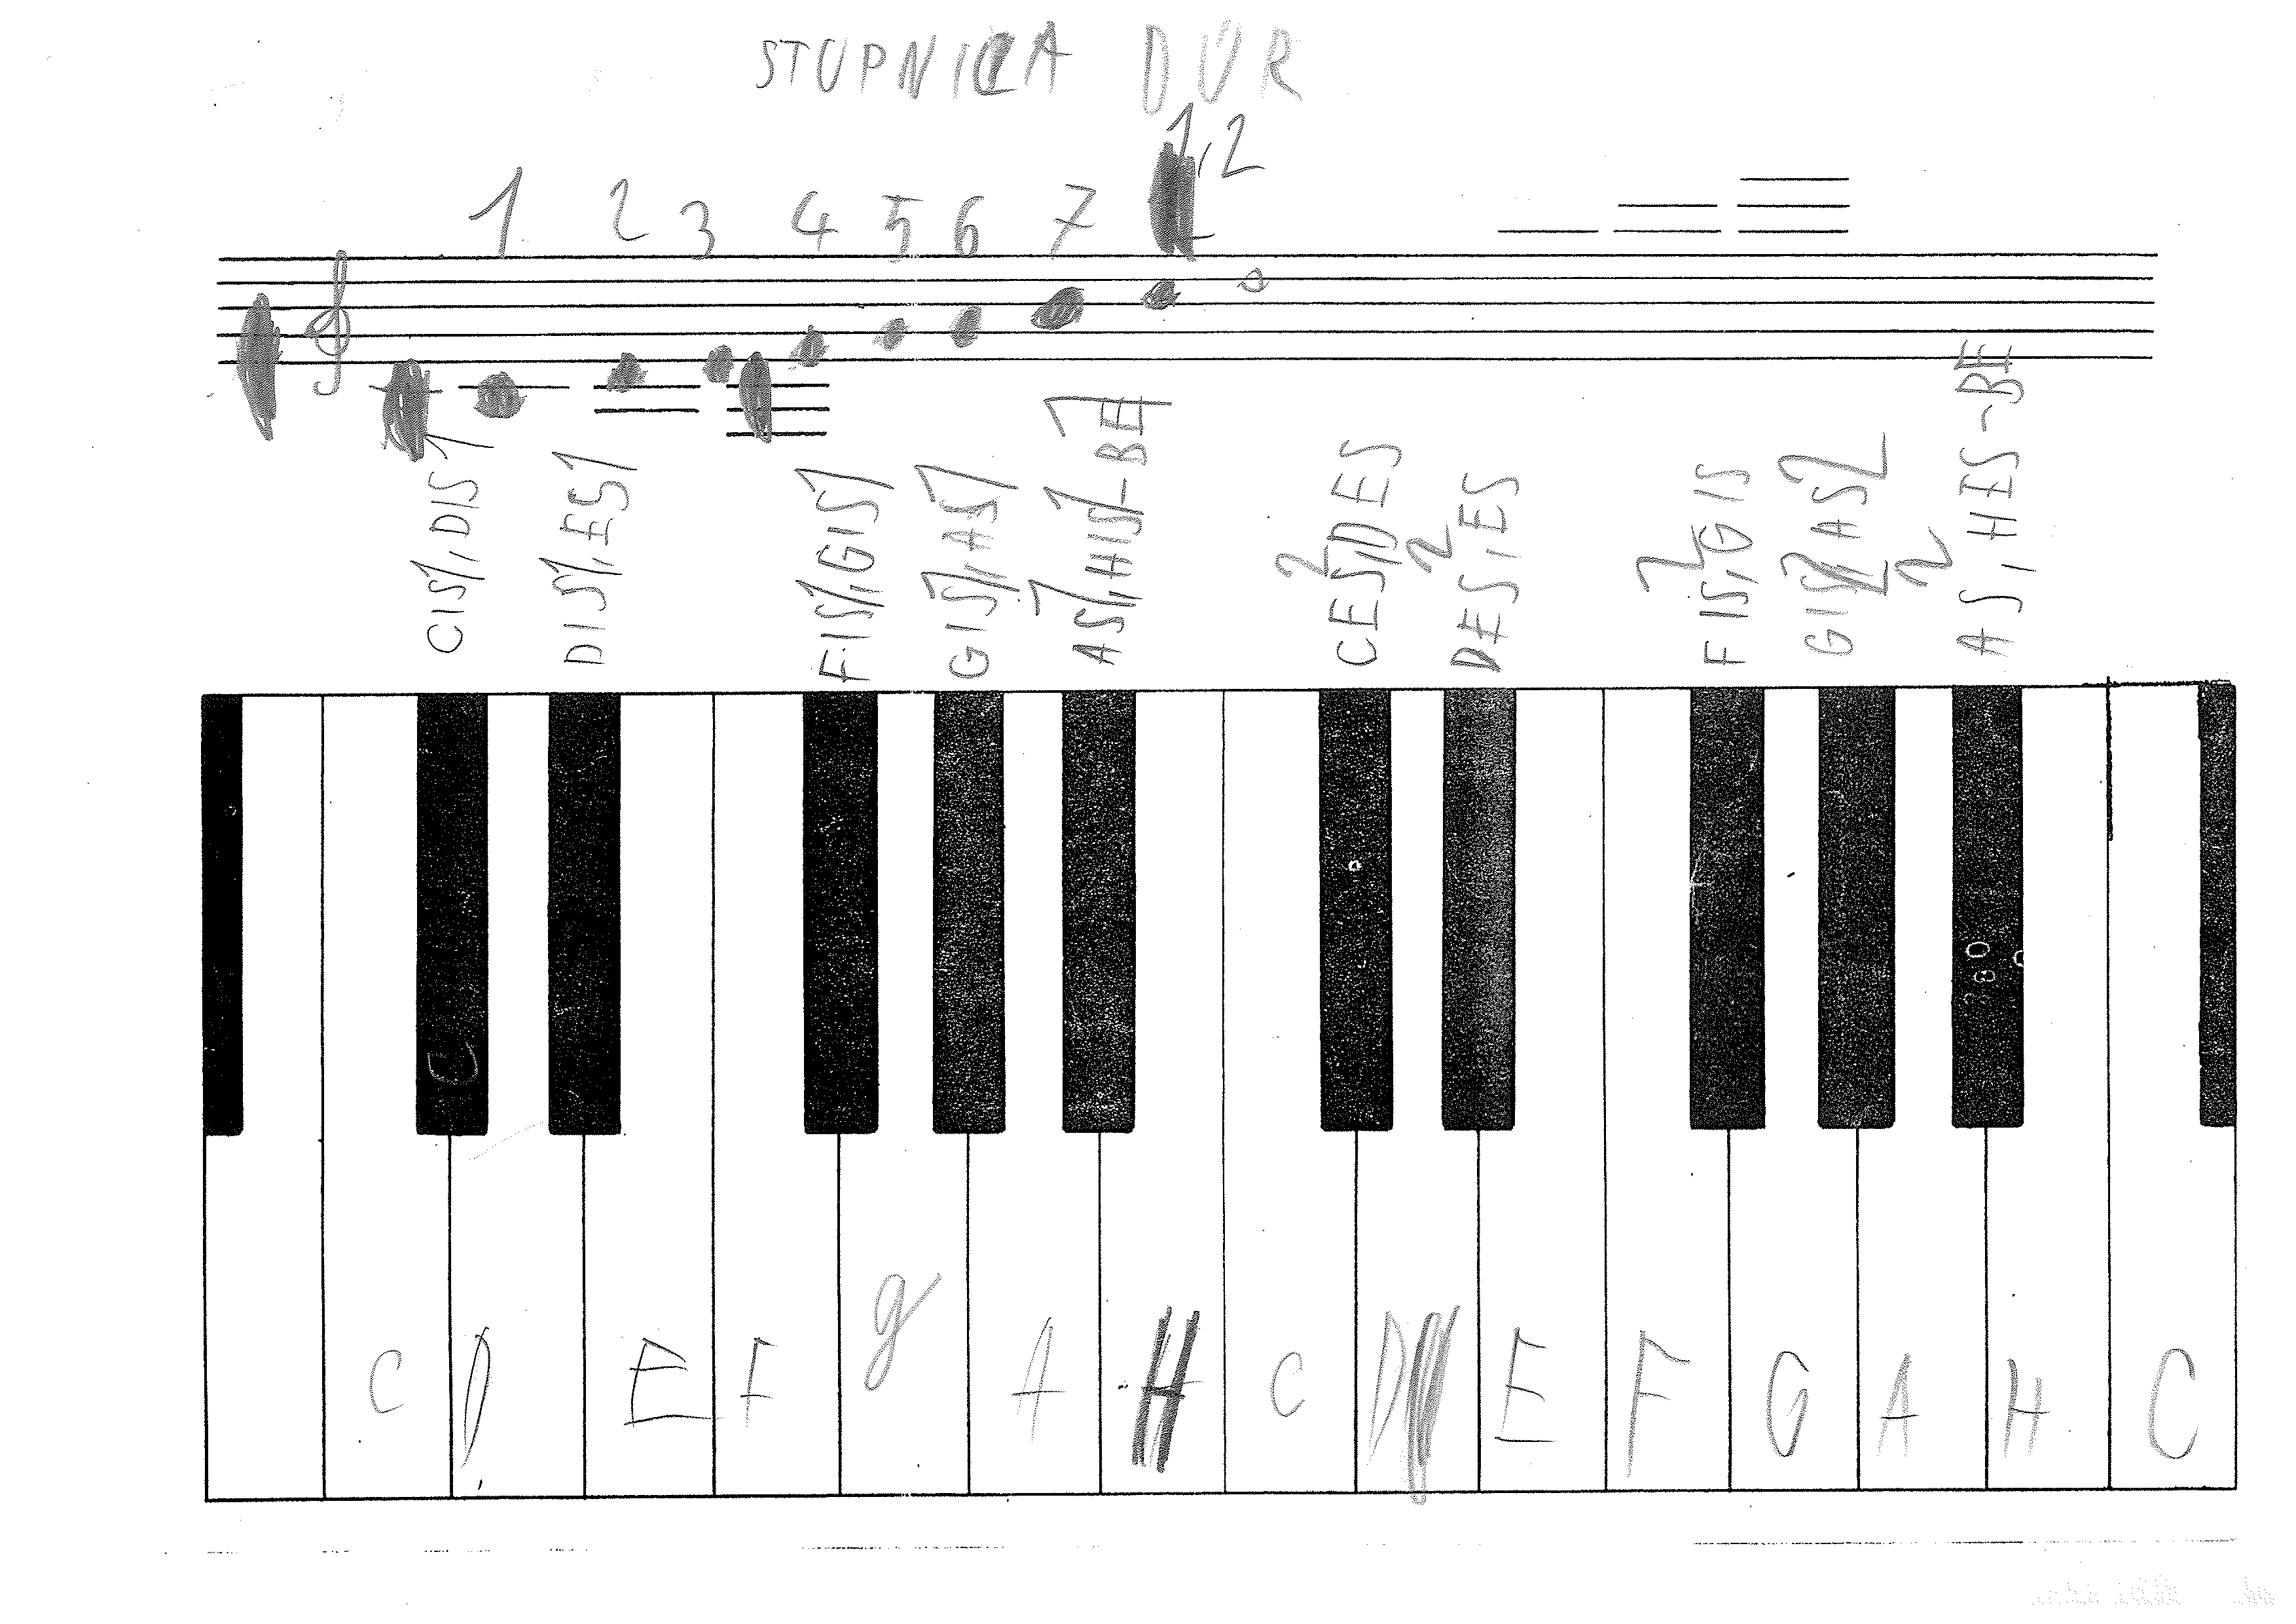 STUPNICA DUR
1 2 3 4 5 6 7 1,2
CIS1, DIS1
DIS1, ES1
FIS1, GIS1
GIS1, AS1
AS1, HIS1-BE1
CES2, DES
DES2, ES
FIS2, GIS
GIS2, AS2
AS2, HES-BE
C D E F g A H C D E F G A H C